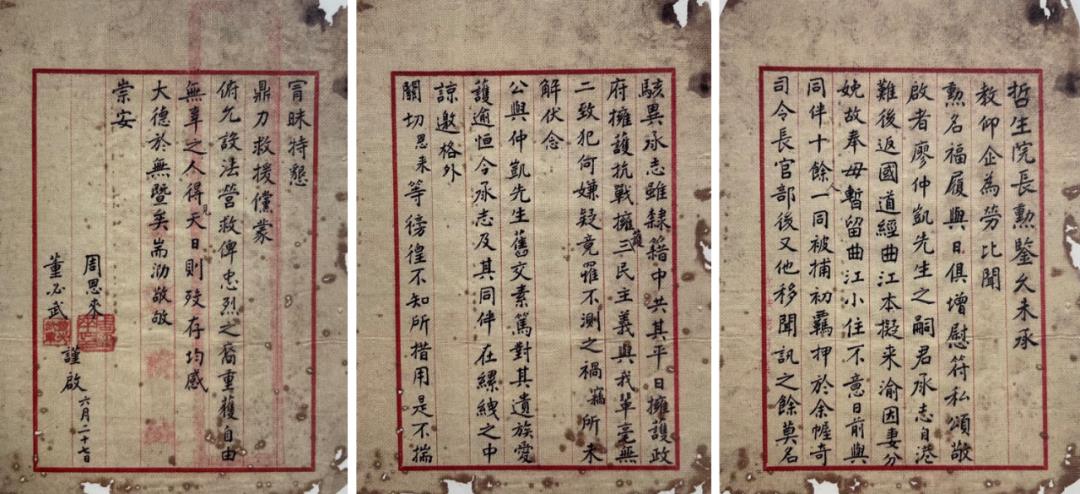 哲生院長勳鑒久未承
教仰企為勞比聞
勳名福履與日俱增慰符私頌敬
啟者廖仲凱先生之嗣君承志自港
難後返國道經曲江本擬來渝因妻分
娩故奉母暫留曲江小住不意日前與
同伴十餘人一同被捕初羈押於余幄奇
司令長官部後又他移聞訊之餘莫名
駭異承志雖隸籍中共其平日擁護政
府擁護抗戰擁護三民主義與我輩毫無
二致犯何嫌疑竟罹不測之禍竊所未
解伏念
公與仲凱先生舊交素篤對其遺族愛
護逾恒今承志及其同伴在縲絏之中
諒邀格外
關切思來等徬徨不知所措用是不揣
冒昧特懇
鼎力救援儻蒙
俯允設法營救俾忠烈之裔重獲自由
無辜之人得見天日則歿存均感
大德於無暨矣耑泐敬敂
崇安
周恩來
董必武
謹啟
六月二十七日